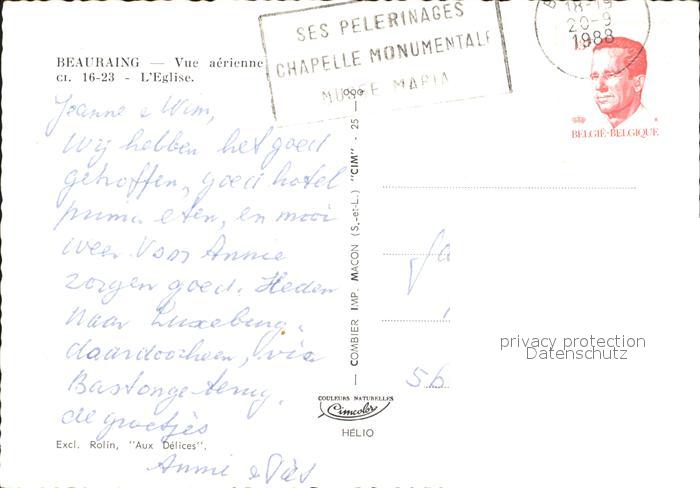 SES PELERINAGES
CHAPELLE MONUMENTALE
MUSEE MARIA
18-19
20-9
1988
BELGIË-BELGIQUE
BEAURAING — Vue aérienne
CI. 16-23 - L'Eglise.
Joanne & Wim,
Wij hebben het goed
getroffen, goed hotel
prima eten, en mooi
weer. Voor Annie
zorgen goed. Heden
naar Luxeburg.
daardoorheen, via
Bastonge terug.
de groetjes
Annie &
Excl. Rolin, "Aux Délices".
COMBIER IMP. MACON (S.-et-L.) "CIM" - 25 - 999
COULEURS NATURELLES
Cimcolor
HÉLIO
privacy protection
Datenschutz